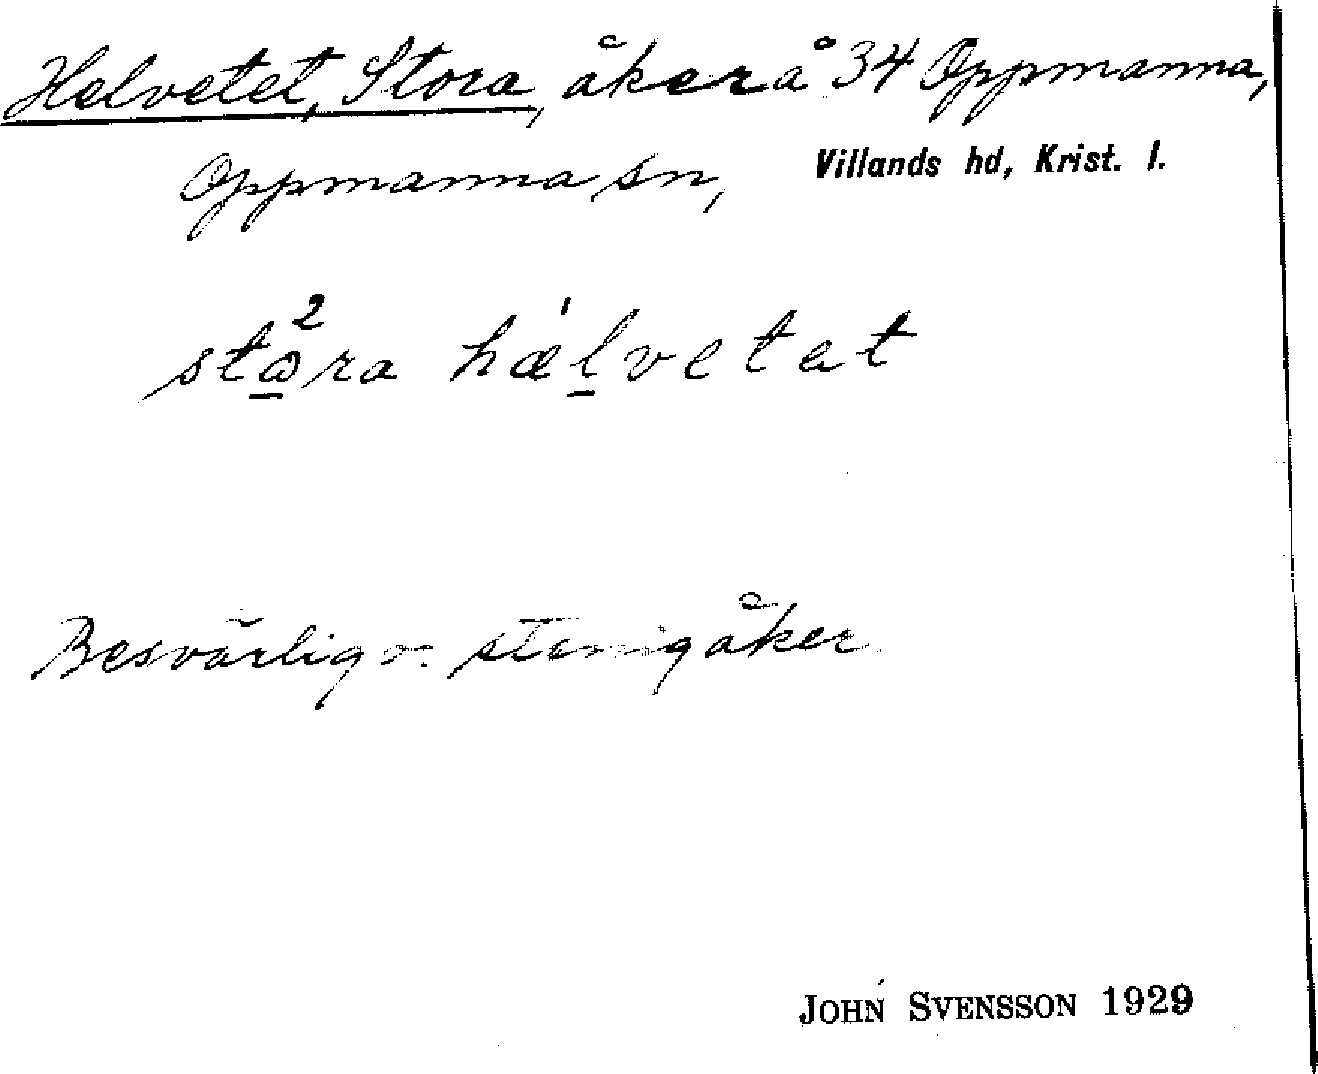 Helvetet, Stora, åker å 34 Oppmanna,
Oppmanna sn, Villands hd, Krist. l.
sto²ra hæ'lvetat
Besvärlig o. stenig åker.
JOHN SVENSSON 1929